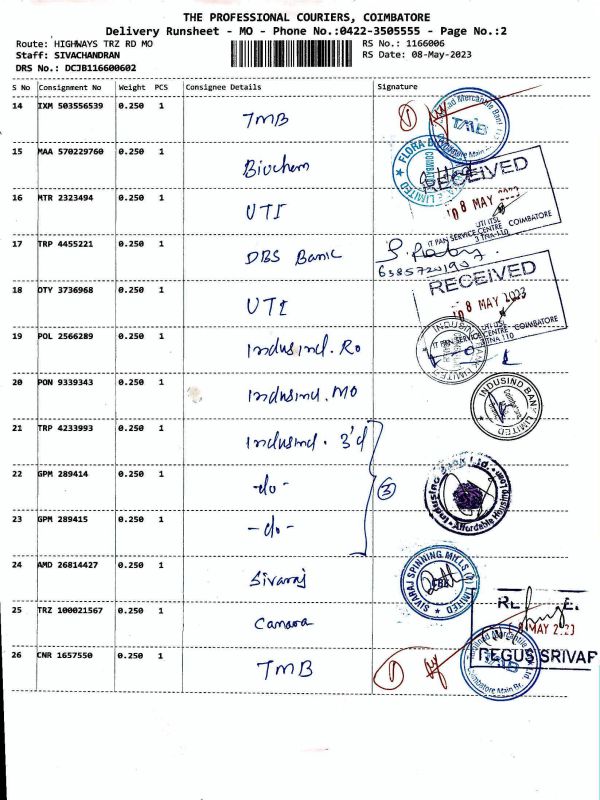 THE PROFESSIONAL COURIERS, COIMBATORE
Delivery Runsheet - MO - Phone No.:0422-3505555 - Page No.:2
Route: HIGHWAYS TRZ RD MO RS No.: 1166006
Staff: SIVACHANDRAN RS Date: 08-May-2023
DRS No.: DCJB116600602
S No Consignment No Weight PCS Consignee Details Signature
14 IXM 503556539 0.250 1 TMB 1
TMB
15 MAA 570229760 0.250 1 Biochem
RECEIVED
16 MTR 2323494 0.250 1 UTI
08 MAY 2023
UTI ITSL
IT PAN SERVICE CENTRE COIMBATORE
3 TNA-110
17 TRP 4455221 0.250 1 DBS Bank
63857201907
RECEIVED
18 DTY 3736968 0.250 1 UTI
08 MAY 2023
UTI ITSL
IT PAN SERVICE CENTRE COIMBATORE
3 TNA 110
19 POL 2566289 0.250 1 Indusind. RO
INDUSIND BANK LIMITED
20 PON 9339343 0.250 1 Indusind. MO
INDUSIND BANK LIMITED
21 TRP 4233993 0.250 1 Indusind. 3'd
22 GPM 289414 0.250 1 -do- 3
Indusind Bank Ltd. Affordable Housing Loan
23 GPM 289415 0.250 1 -do-
24 AMD 26814427 0.250 1 Sivaraj
SIVARAJ SPINNING MILLS (P) LIMITED
25 TRZ 100021567 0.250 1 Canara
MAY 2023
26 CNR 1657550 0.250 1 TMB 1
TMB
Coimbatore Main Br.
REGUS SRIVAR